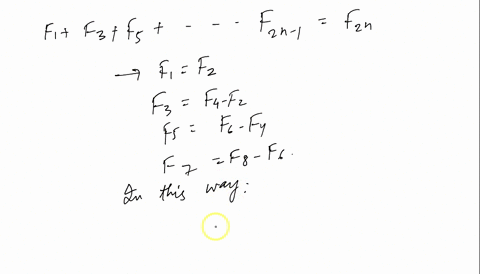 F₁ + F₃ + f₅ + - - - F₂ₙ₋₁ = f₂ₙ
→ F₁ = F₂
F₃ = F₄-F₂
F₅ = F₆-F₄
F₇ = F₈-F₆.
In this way: